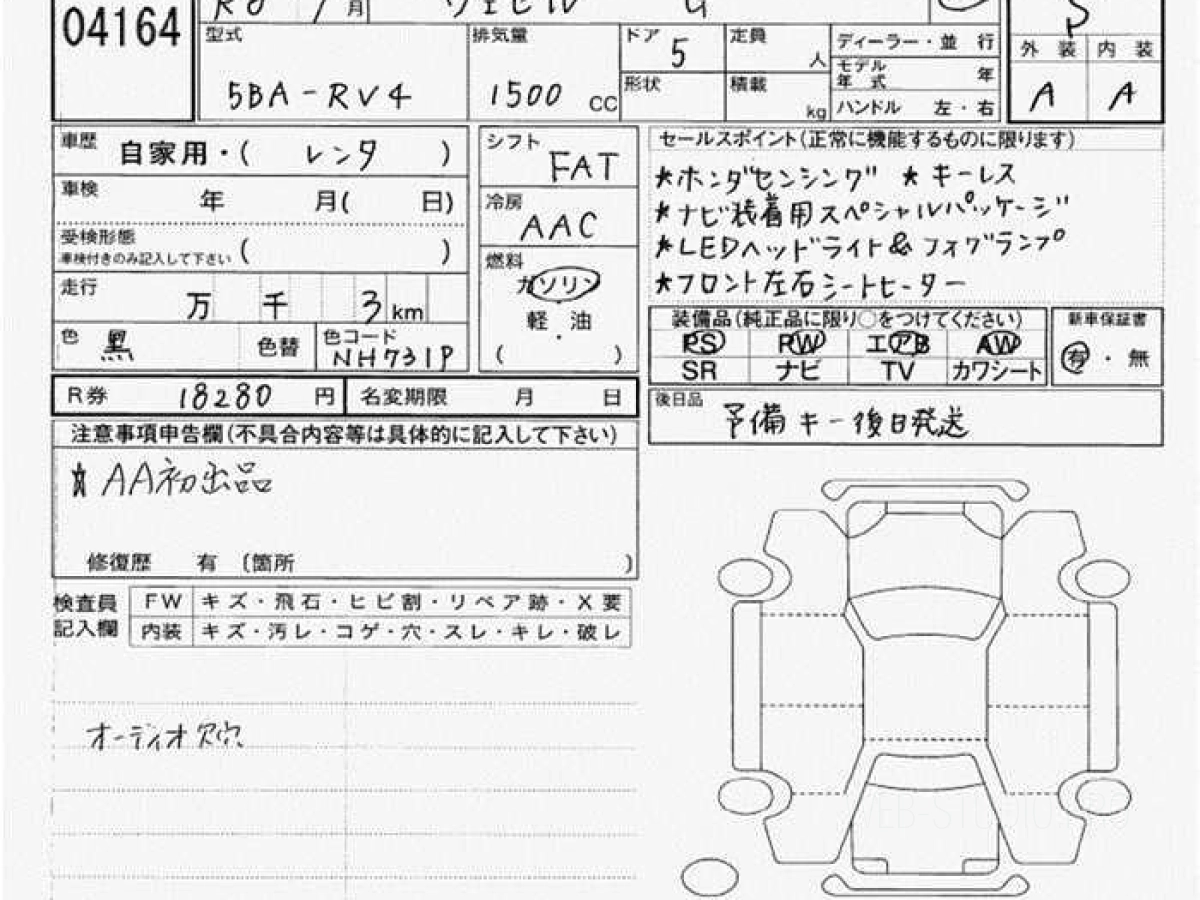 04164
月
ヴェゼル G
S
型式
5BA-RV4
排気量
1500 CC
ドア 5
形状
定員 人
積載 kg
ディーラー・並 行
モデル年式 年
ハンドル 左・右
外 装 内 装
A A
車歴 自家用・( レンタ )
車検 年 月( 日)
受検形態
車検付きのみ記入して下さい ( )
走行 万 千 3 km
色 黒 色替
色コード NH731P
シフト FAT
冷房 AAC
燃料 ガソリン
軽・油
( )
セールスポイント(正常に機能するものに限ります)
★ホンダセンシング ★キーレス
★ナビ装着用スペシャルパッケージ
★LEDヘッドライト&フォグランプ
★フロント左右シートヒーター
装備品(純正品に限り○をつけてください)
PS PW エアB AW
SR ナビ TV カワシート
新車保証書
有・無
R券 18280 円
名変期限 月 日
後日品 予備キー後日発送
注意事項申告欄(不具合内容等は具体的に記入して下さい)
★AA初出品
修復歴 有 〔箇所 )
検査員記入欄
FW キズ・飛石・ヒビ割・リペア跡・X要
内装 キズ・汚レ・コゲ・穴・スレ・キレ・破レ
オーディオ欠穴